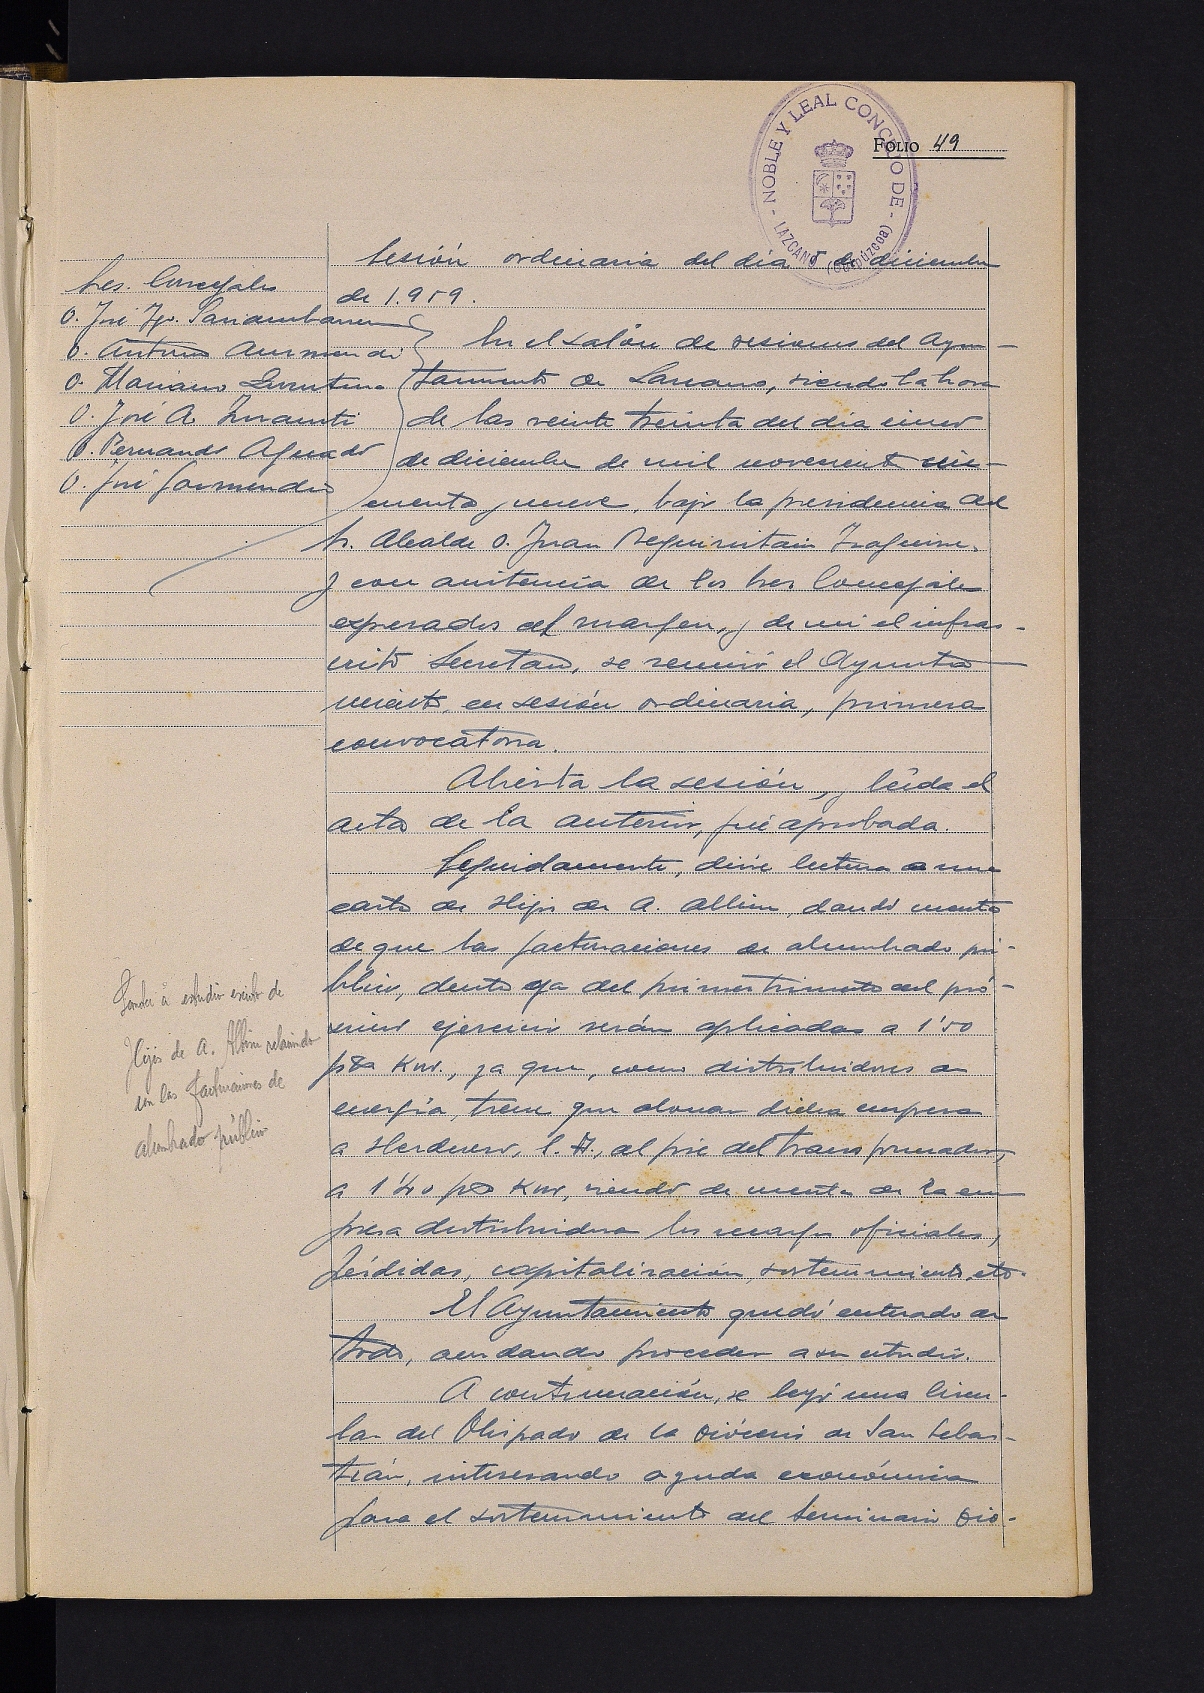 NOBLE Y LEAL CONCEJO DE - LAZCANO (Guipúzcoa)
FOLIO 49
Sres. Concejales
D. José
D. Antonio Aurmendi
D. Mariano
D. José A.
D. Fernando Aguado
D. José Garmendia
Sesión ordinaria del día 5 de diciembre
de 1.959.
En el salón de sesiones del Ayun-
tamiento de Lazcano, siendo la hora
de las veinte treinta del día cinco
de diciembre de mil novecientos cin-
cuenta y nueve, bajo la presidencia del
Sr. Alcalde D. Juan
y con asistencia de los Sres Concejales
expresados al margen, y de mi el infras-
crito Secretario, se reunió el Ayunta
miento, en sesión ordinaria, primera
convocatoria.
Abierta la sesión, y leída el
acta de la anterior, fué aprobada.
Seguidamente, dióse lectura a una
carta de Hijos de A. Albisu, dando cuenta
de que las facturaciones de alumbrado pú-
blico, dentro ya del primer trimestre del pró-
ximo ejercicio serán aplicadas a 1'50
pta Kw., ya que, como distribuidores de
energía, tiene que abonar dicha empresa
a Iberduero, S. A., al pie del transformador,
a 1'40 pta Kw, siendo de cuenta de la em
presa distribuidora los recargos oficiales,
pérdidas, capitalización, sostenimiento, etc.
El Ayuntamiento quedó enterado de
todo, acordando proceder a su estudio.
A continuación, se leyó una Circu-
lar del Obispado de la Diócesis de San Sebas-
tián, interesando ayuda económica
para el sostenimiento del Seminario Dio-
a estudio escrito de
Hijos de A. Albisu relacionado
con las facturaciones de
alumbrado público